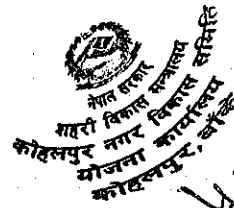 नेपाल सरकार
शहरी विकास मन्त्रालय
कोहलपुर नगर विकास समिति
योजना कार्यालय
कोहलपुर, बाँके